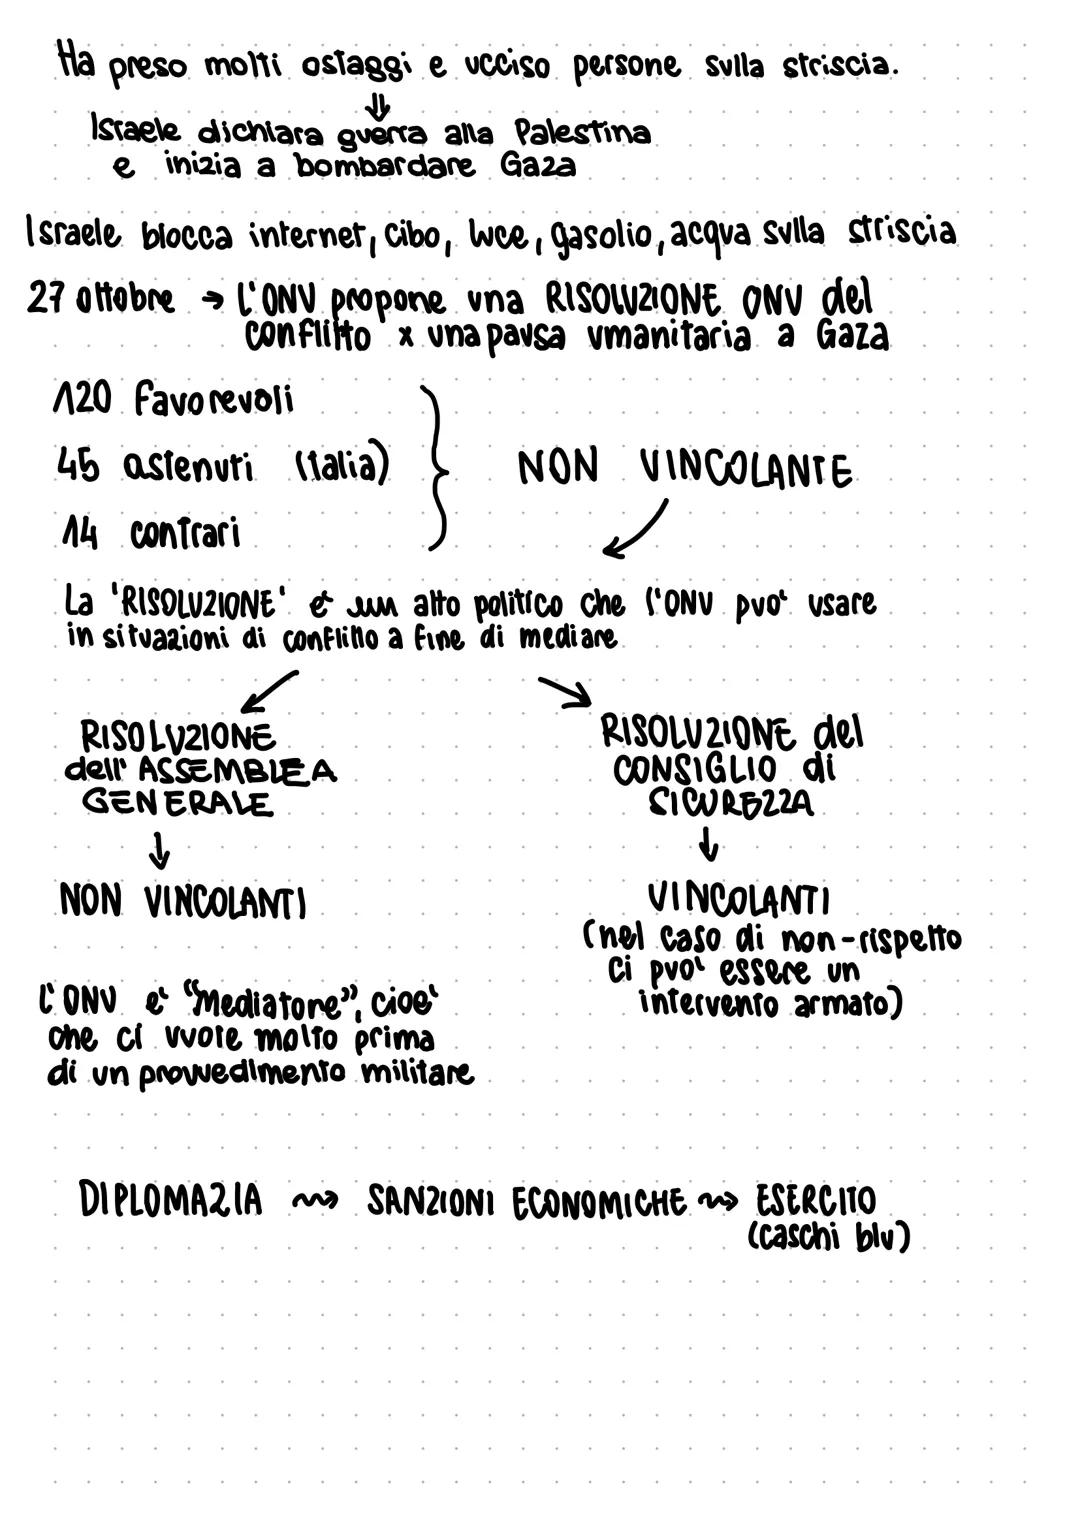 Ha preso molti ostaggi e ucciso persone sulla striscia.
⇓
Israele dichiara guerra alla Palestina
e inizia a bombardare Gaza
Israele blocca internet, cibo, luce, gasolio, acqua sulla striscia
27 ottobre → L'ONU propone una RISOLUZIONE ONU del
conflitto x una pausa umanitaria a Gaza
120 favorevoli
45 astenuti (Italia)
NON VINCOLANTE
14 contrari
La 'RISOLUZIONE' è un atto politico che l'ONU può usare
in situazioni di conflitto a fine di mediare
RISOLUZIONE
dell' ASSEMBLEA
GENERALE
↓
NON VINCOLANTI
RISOLUZIONE del
CONSIGLIO di
SICUREZZA
↓
VINCOLANTI
(nel caso di non-rispetto
ci può essere un
intervento armato)
L'ONU è "Mediatore", cioè
che ci vuole molto prima
di un provvedimento militare
DIPLOMAZIA ⇝ SANZIONI ECONOMICHE ⇝ ESERCITO
(caschi blu)